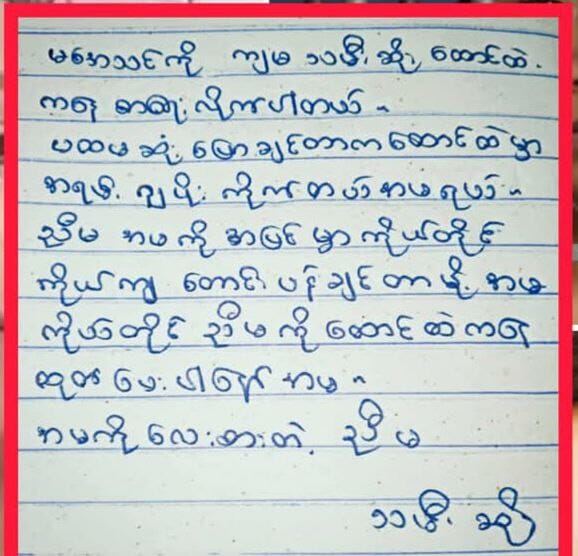 မအေးသင်ကို ကျမ သဇီ, ဆိုး, ထောင်ထဲ.
ကနေ စာရေး လိုက်ပါတယ်။
ပထမ ဆုံး ပြော ချင်တာက ထောင်ထဲမှာ
အရမ်း ပျိုး ကိုက တယ် အမ ရယ်။
ညီမ အမ ကို အပြင် မှာ ကိုယ်တိုင်
ကိုယ်ကျ တောင်း ပန် ချင် တာ မို့ အမ
ကိုယ်တိုင် ညီမ ကို ထောင် ထဲ ကနေ
ထုတ် ပေး ပါနော် အမ။
အမကို လေးစားတဲ့ ညီ မ